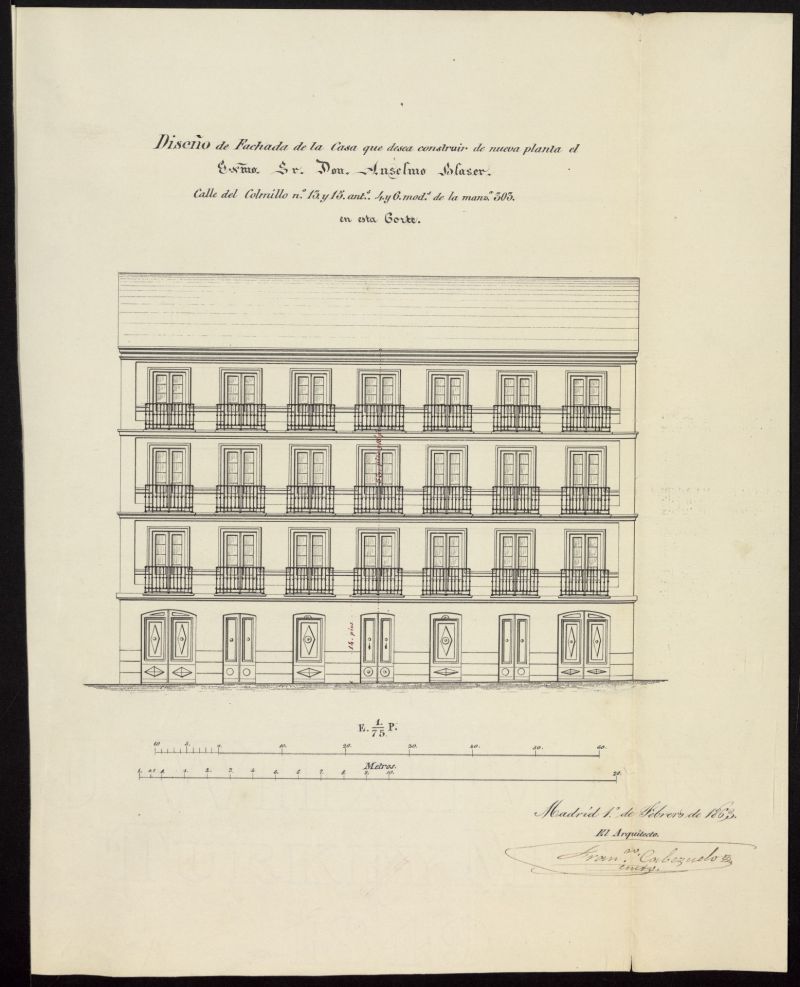 Diseño de Fachada de la Casa que desea construir de nueva planta el
Exmo. Sr. Don. Anselmo Blaser.
Calle del Colmillo n.º 13. y 15. ant.s 4 y 6. mod.s de la manz.ª 303.
en esta Corte.
14. pies
E. 1/75. P.
10. 5. 0. 10. 20. 30. 40. 50. 60.
Metros.
1. 2. 3. 4. 5. 6. 7. 8. 9. 10. 20.
Madrid 1.º de Febrero de 1863.
El Arquitecto.
Fran.co Cabezuelo